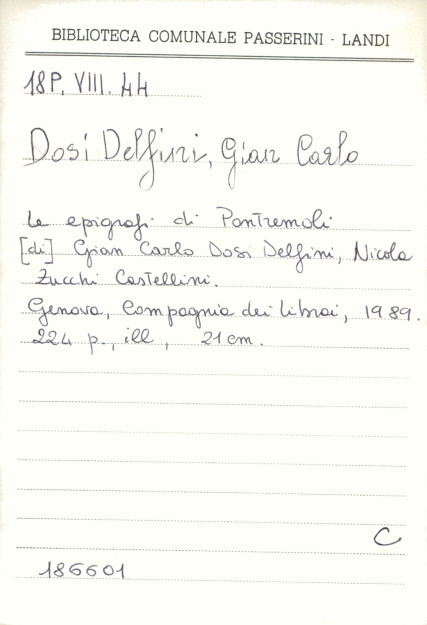 BIBLIOTECA COMUNALE PASSERINI - LANDI
18P. VIII. 44
Dosi Delfini, Gian Carlo
Le epigrafi di Pontremoli
[di] Gian Carlo Dosi Delfini, Nicola
Zucchi Castellini.
Genova, Compagnia dei librai, 1989.
224 p., ill, 21 cm.
C
186601